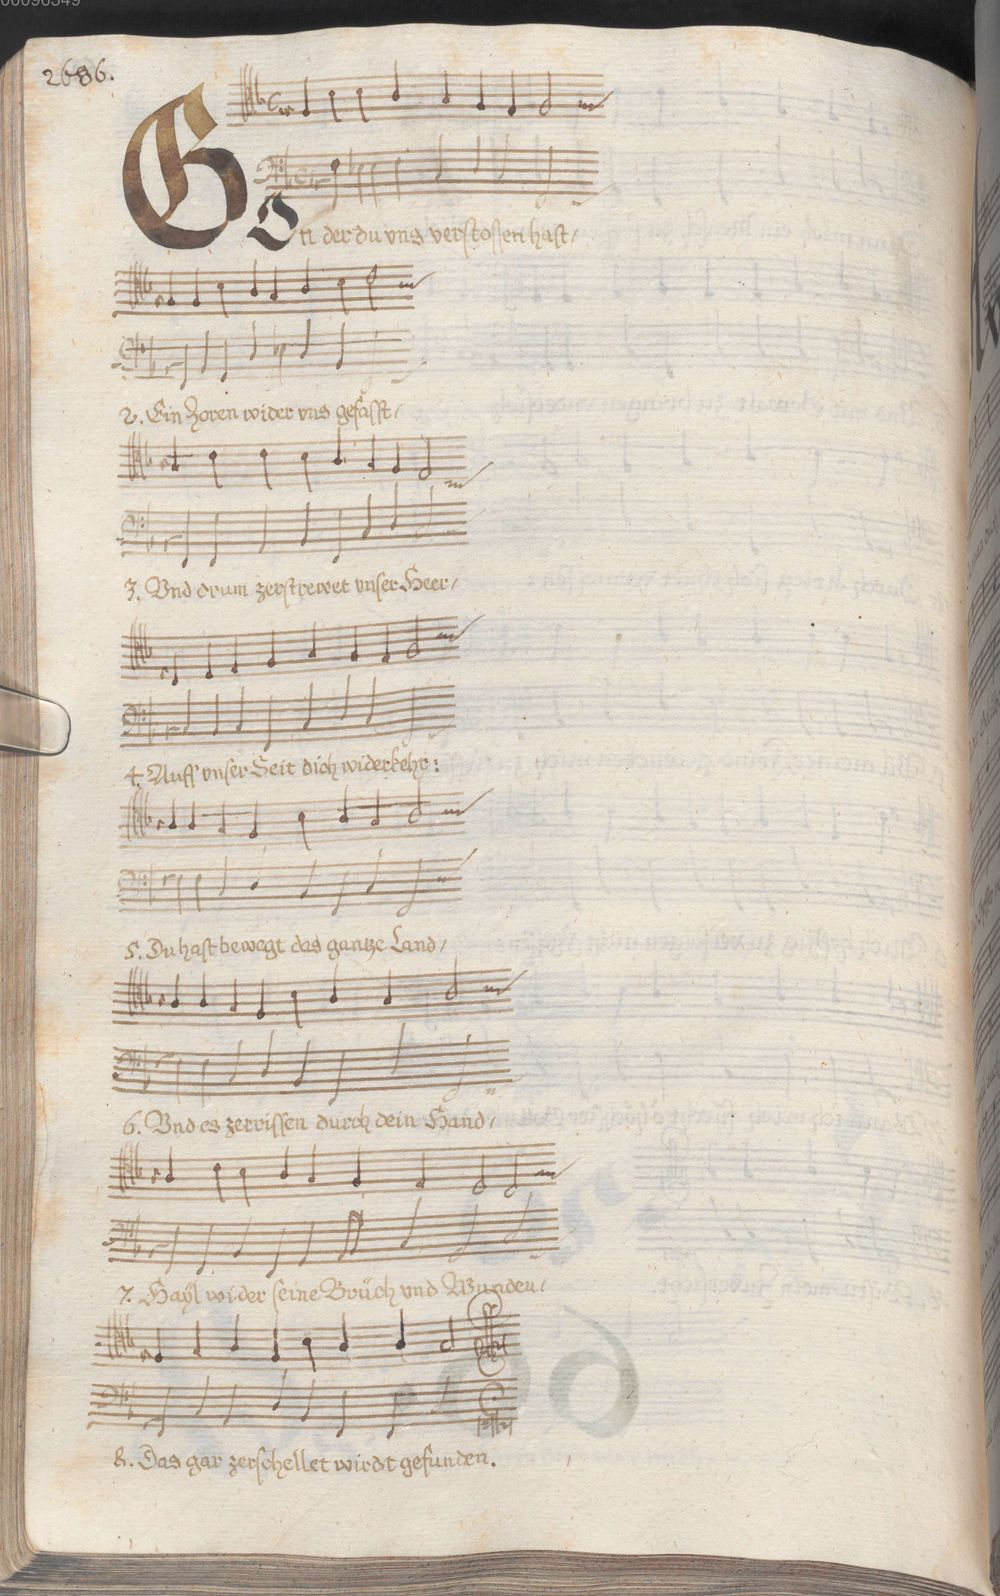 00096549
2686.
GOtt der du vns verstossen hast/
2. Ein Zoren wider vns gefasst/
3. Vnd drum zerstrewet vnser Heer/
4. Auff vnser Seit dich widerkehr:
5. Du hast bewegt das gantze Land/
6. Vnd es zerrissen durch dein Hand/
7. Hayl wider seine Brüch vnd Wunden/
8. Das gar zerschellet wirdt gefunden.